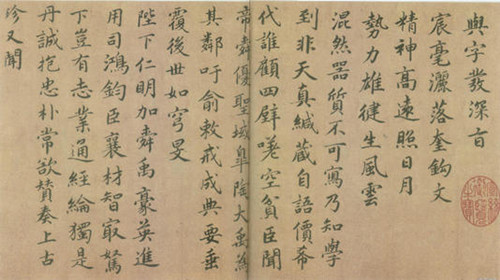 與字發深旨
宸毫灑落奎鈎文
精神高遠照日月
勢力雄健生風雲
混然器質不可寫乃知學
到非天真緘藏自語價希
代誰顧四壁嗟空貧臣聞
帝舜優聖域皐陶大禹爲
其鄰吁俞敕戒成典要垂
覆後世如穹旻
陛下仁明加舜禹豪英進
用司鴻鈞臣襄材智最駑
下豈有志業通經綸獨是
丹誠抱忠朴常欲贊奏上古
珍又聞